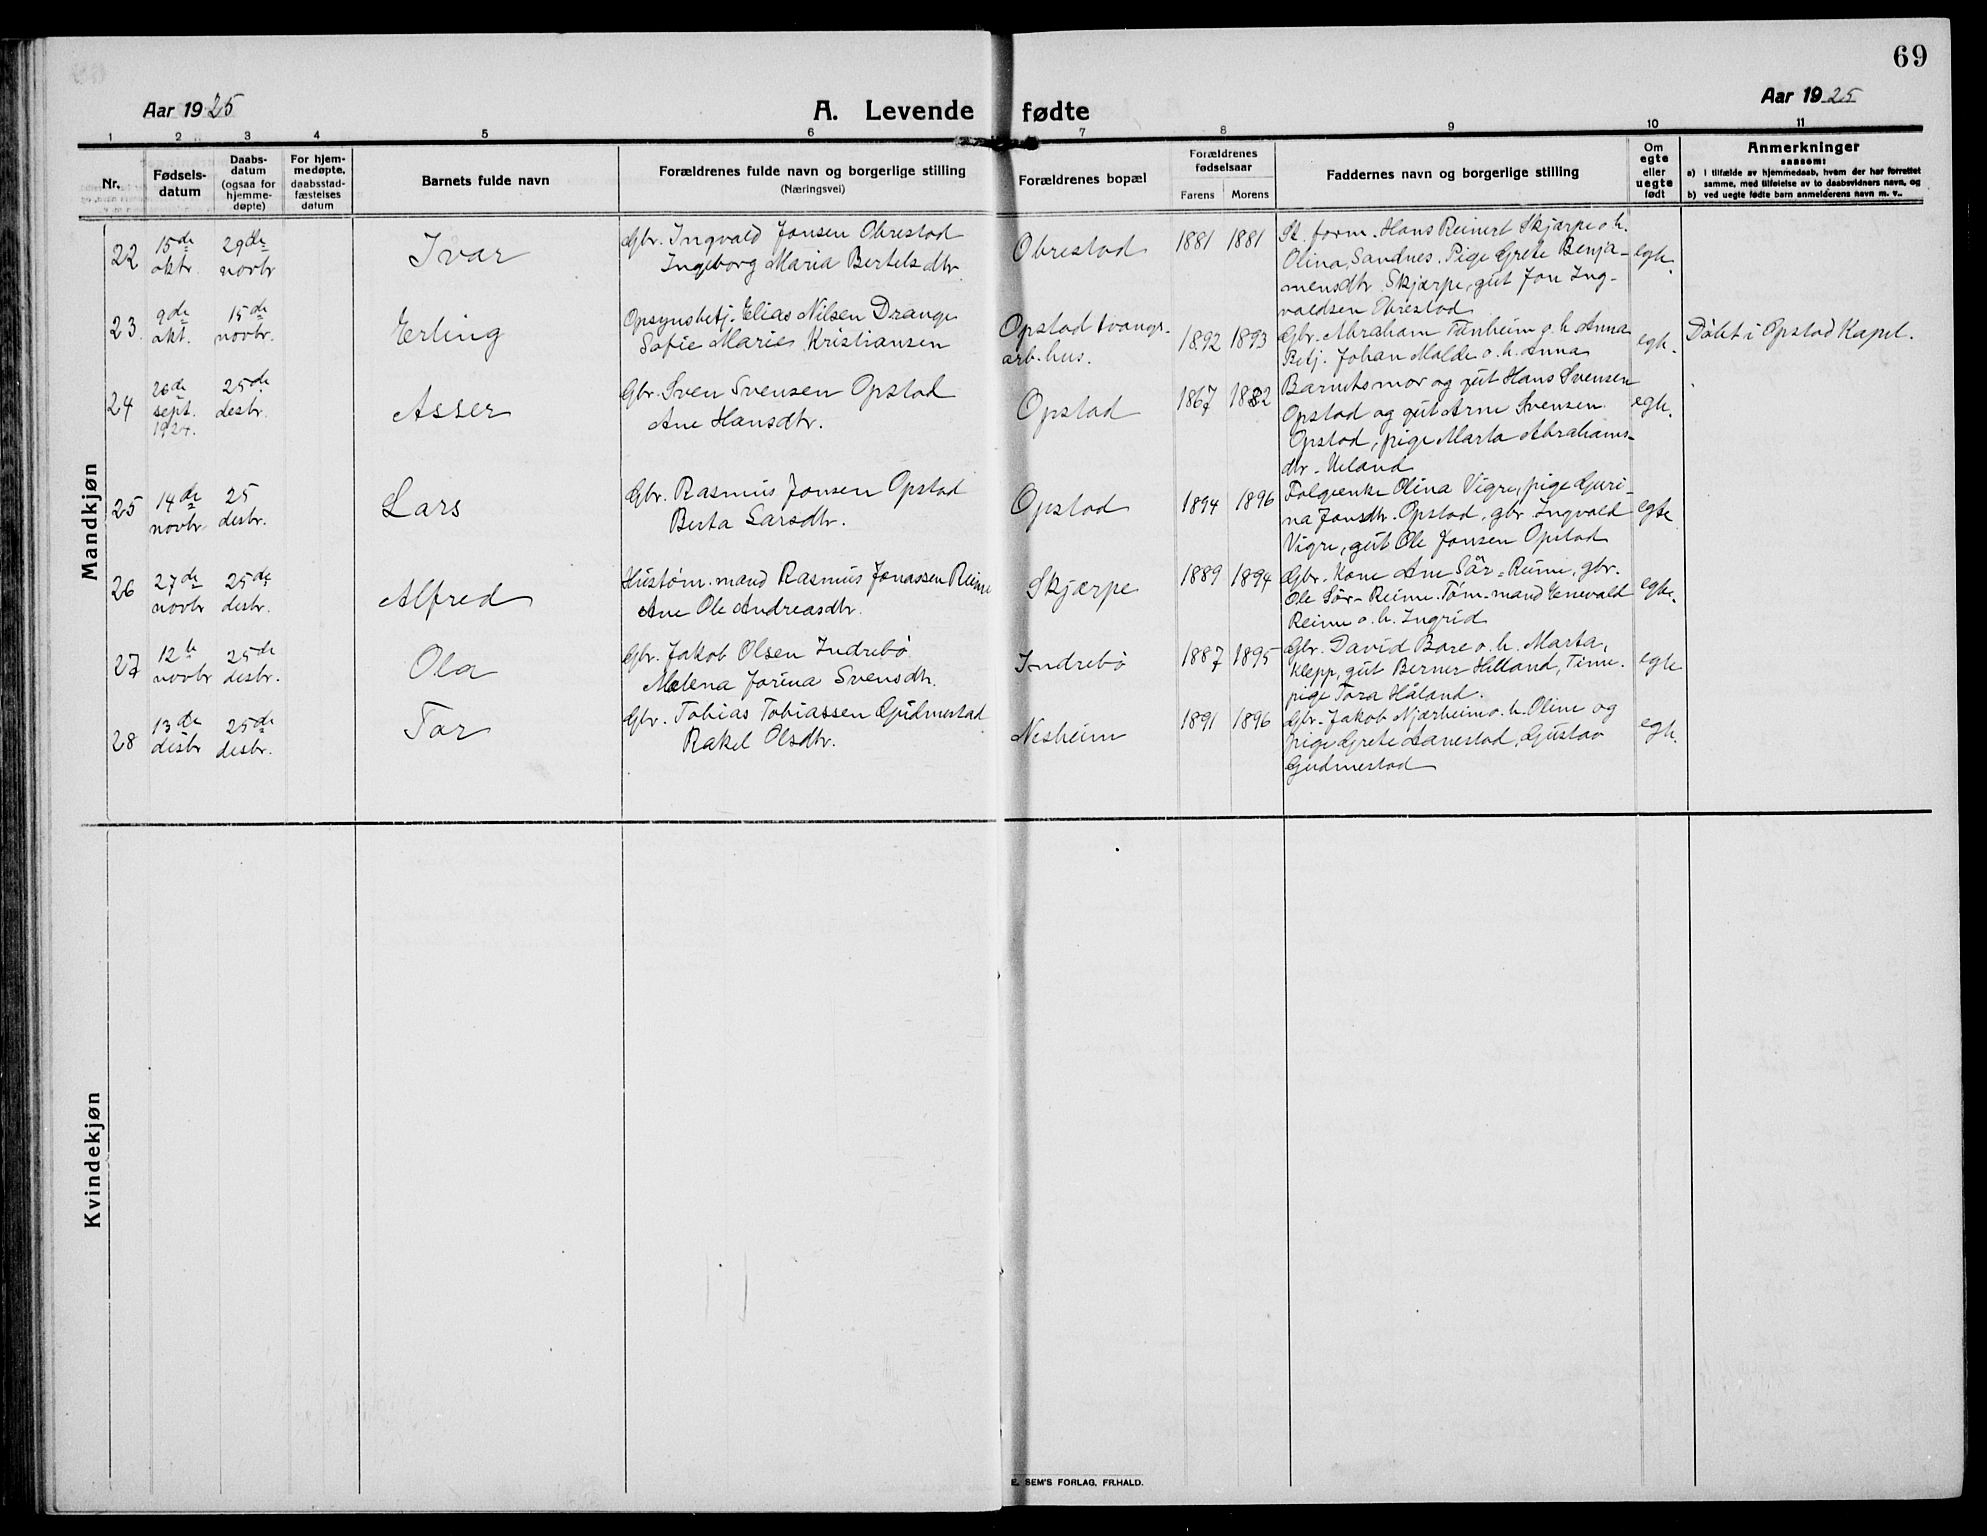 69
Aar 1925
A. Levende fødte
Aar 1925
1 2 3 4 5 6 7 8 9 10 11
Nr.
Fødsels-
datum
Daabs-
datum
(ogsaa for
hjemme-
døpte)
For hjem-
medøpte,
daabsstad-
fæstelses
datum
Barnets fulde navn
Forældrenes fulde navn og borgerlige stilling
(Næringsvei)
Forældrenes bopæl
Forældrenes
fødselsaar
Farens Morens
Faddernes navn og borgerlige stilling
Om
egte
eller
uegte
født
Anmerkninger
saasom:
a) i tilfælde av hjemmedaab, hvem der har forrettet
samme, med tilføielse av to daabsvidners navn, og
b) ved uegte fødte barn anmelderens navn m. v..
Mandkjøn
22
15de
oktr.
29de
novbr
Ivar
Gbr. Ingvald Jonsen Obrestad
Ingeborg Maria Bertelsdtr.
Obrestad
1881 1881
St. form. Hans Reinert Skjærpe o. h.
Olina, Sandnes. Pige Grete Benja-
mensdtr. Skjærpe, gut Jon Ing-
valdsen Obrestad
egte.
23
9de
okt.
15de
novbr.
Erling
Opsynsbetj. Elias Nilsen Drange
Sofie Marie Kristiansen
Opstad tvangs.
arb.hus.
1892 1893
Gbr. Abraham o. h. Anna
Betj. Johan Malde o. h. Anna
egte.
Døbt i Opstad Kapel.
24
26de
sept.
1924.
25de
desbr.
Asser
Gbr. Sven Svensen Opstad
Ane Hansdtr.
Opstad
1867 1882
Barnets mor og gut Hans Svensen
Opstad og gut Arne Svensen
Opstad, pige Marta Abrahams-
dtr. Ueland
egte.
25
14de
novbr
25
desbr.
Lars
Gbr. Rasmus Jonsen Opstad
Berta Larsdtr.
Opstad
1894 1896
Olina Vigre, pige Guri-
na Jonsdtr. Opstad, gbr Ingvald
Vigre, gut Ole Jonsen Opstad
egte
26
27de
novbr
25de
desbr.
Alfred
Hustøm.mand Rasmus Jonassen Reime
Ane Ole Andreasdtr.
Skjærpe
1889 1894
Gbr. Kone Ane Sør-Reime, gbr.
Ole Sør-Reime. Tøm.mand Enevald
Reime o. h. Ingrid
egte.
27
12te
novbr
25de
desbr.
Ola
Gbr. Jakob Olsen Indrebø
Malena Jorina Svensdtr.
Indrebø
1887 1895
Gbr. David Bore o. h. Marta,
Klepp, gut Berner Håland, Time.
pige Tora Håland.
egte
28
13de
desbr
25de
desbr.
Tor
Gbr. Tobias Tobiassen Gudmestad
Rakel Olsdtr.
Nesheim
1891 1896
Gbr. Jakob Njærheim o. h. Oline og
pige Grete Aanestad, Gustav
Gudmestad
egte.
Kvindekjøn
E. SEM'S FORLAG. FR.HALD.